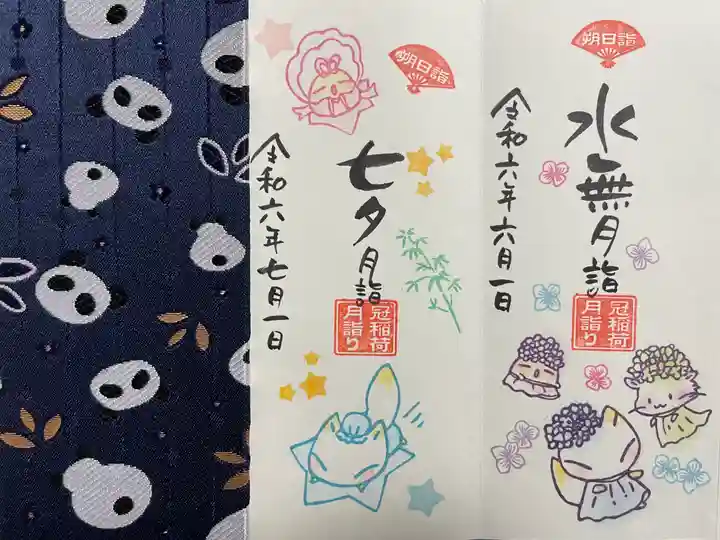 朔日詣
水無月詣
令和六年六月一日
冠稲荷
月詣り
朔日詣
七夕月詣
令和六年七月一日
冠稲荷
月詣り